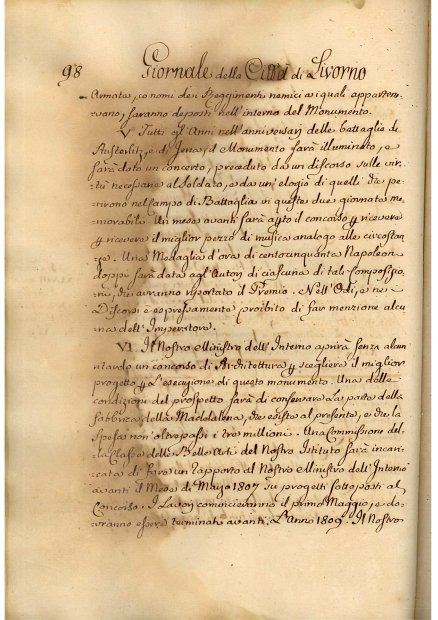 98 Giornale della Città di Livorno
Armata, co nomi dei Reggimenti nemici a i quali apparten-
evano, saranno deposti nell'interno del Monumento.
V Tutti gl'Anni nell'anniversarj delle battaglie di
Austerlitz, e di Jena, il Monumento sarà illuminato, e
sarà dato un concerto, preceduto da un discorso sulle vir-
tù necessarie al Soldato, e da un'elogio di quelli che pe-
rirono nel Campo di Battaglia in queste due giornate me-
morabili. Un mese avanti sarà apto il concorso p ricevere
p ricevere il miglior pezzo di musica analogo alle circostan-
ze. Una Medaglia d'oro di centocinquanta Napoleon
doppi sarà data agl'Autori di ciascuna di tali Composizio-
ni, che avranno riportato il Premio. Nell'Odi, e nei
Discorsi è espressamente proibito di far menzione alcu-
na dell'Imperatore.
VI Il Nostro Ministro dell'Interno aprirà senza alcun
ritardo un concorso di Architettura p scegliere il miglior
progetto p l'esecuzione di questo monumento. Una delle
condizioni del prospetto sarà di conservare la parte della
fabbrica della Maddalena, che esiste al presente, e che la
spesa non'oltrepassi i tre millioni. Una Commissione del-
la Classe delle Belle Arti del Nostro Istituto sarà incari-
cata di fare un rapporto al Nostro Ministro dell'Interno
avanti il Mese di Marzo 1807 su progetti sottoposti al
Concorso. I Lavori comincieranno il primo Maggio, e do-
vranno essere terminati avanti L'Anno 1809. Il Nostro